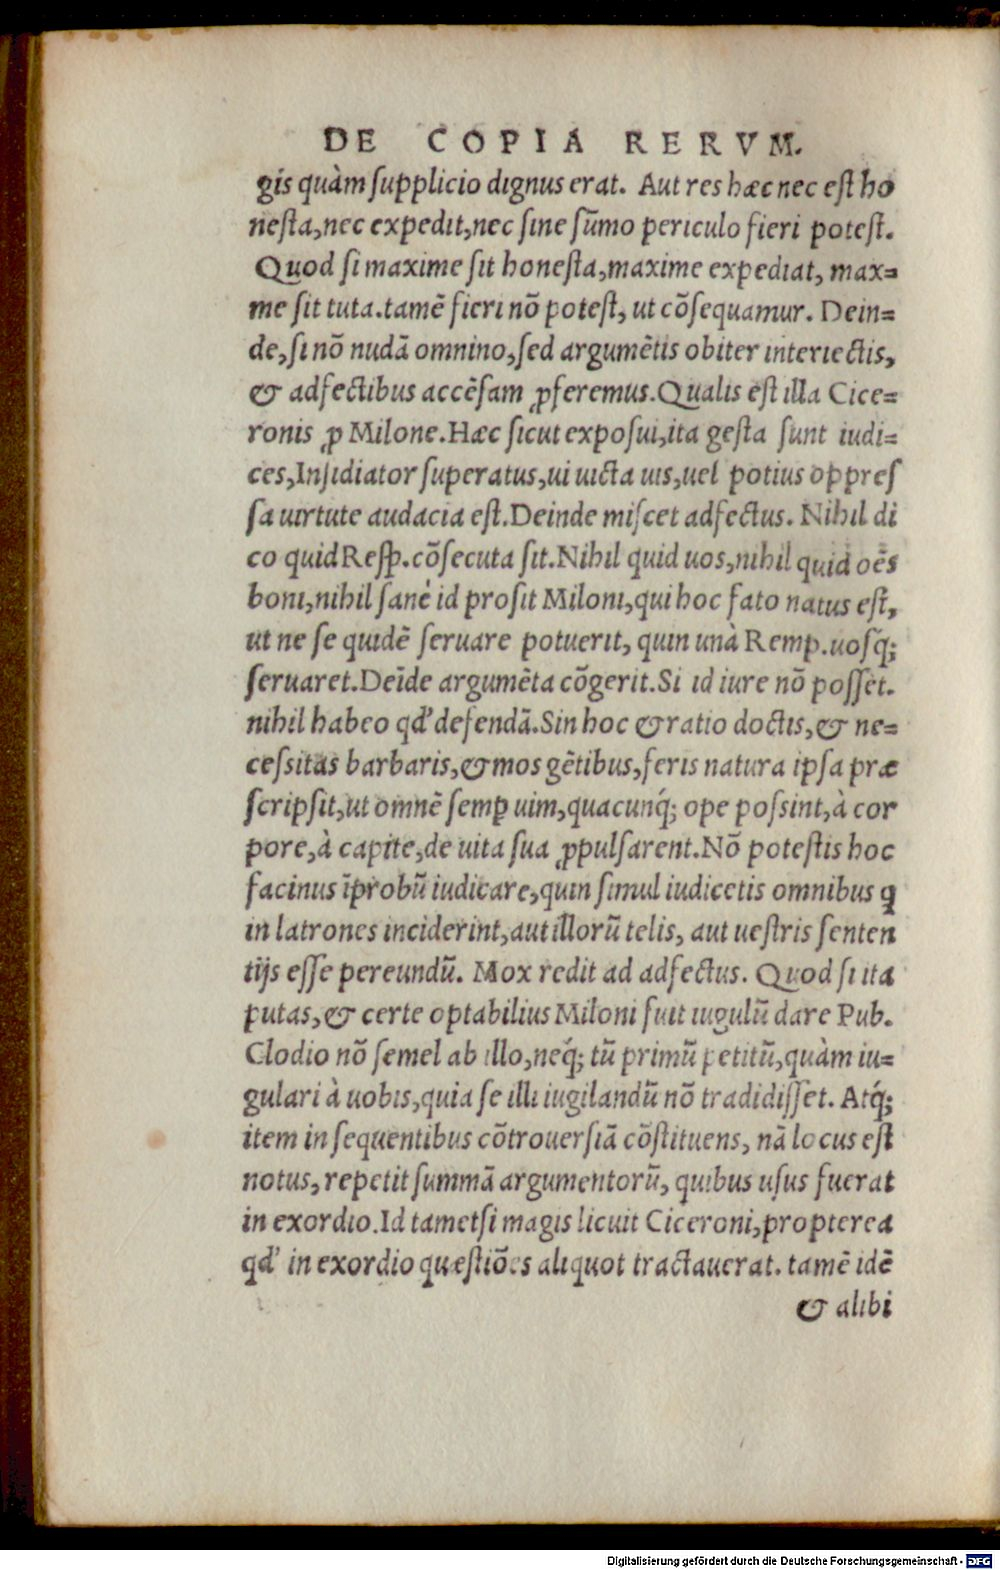 DE COPIA RERVM.
gis quàm ſupplicio dignus erat. Aut res hæc nec eſt ho
neſta, nec expedit, nec ſine ſũmo periculo fieri poteſt.
Quod ſi maxime ſit honeſta, maxime expediat, max=
me ſit tuta. tamẽ fieri nõ poteſt, ut cõſequamur. Dein=
de, ſi nõ nudã omnino, ſed argumẽtis obiter interiectis,
& adfectibus accẽſam ꝓferemus. Qualis eſt illa Cice=
ronis ꝓ Milone. Hæc ſicut expoſui, ita geſta ſunt iudi=
ces, Inſidiator ſuperatus, ui uicta uis, uel potius oppreſ
ſa uirtute audacia eſt. Deinde miſcet adfectus. Nihil di
co quid Reſp. cõſecuta ſit. Nihil quid uos, nihil quid oẽs
boni, nihil ſanè id proſit Miloni, qui hoc fato natus eſt,
ut ne ſe quidẽ ſeruare potuerit, quin unà Remp. uoſq́;
ſeruaret. Deĩde argumẽta cõgerit. Si id iure nõ poſſet.
nihil habeo qd' defendã. Sin hoc & ratio doctis, & ne=
ceſsitas barbaris, & mos gẽtibus, feris natura ipſa præ
ſcripſit, ut omnẽ ſemꝑ uim, quacunq́; ope poſsint, à cor
pore, à capite, de uita ſua ꝓpulſarent. Nõ poteſtis hoc
facinus ĩprobũ iudicare, quin ſimul iudicetis omnibus ꝗ
in latrones inciderint, aut illorũ telis, aut ueſtris ſenten
tijs eſſe pereundũ. Mox redit ad adfectus. Quod ſi ita
putas, & certe optabilius Miloni fuit iugulũ dare Pub.
Clodio nõ ſemel ab illo, neq́; tũ primũ petitũ, quàm iu=
gulari à uobis, quia ſe illi iugilandũ nõ tradidiſſet. Atq́;
item in ſequentibus cõtrouerſiã cõſtituens, nã locus eſt
notus, repetit ſummã argumentorũ, quibus uſus fuerat
in exordio. Id tametſi magis licuit Ciceroni, propterea
qd' in exordio quæſtiões aliquot tractauerat. tamẽ idẽ
& alibi
Digitalisierung gefördert durch die Deutsche Forschungsgemeinschaft - DFG